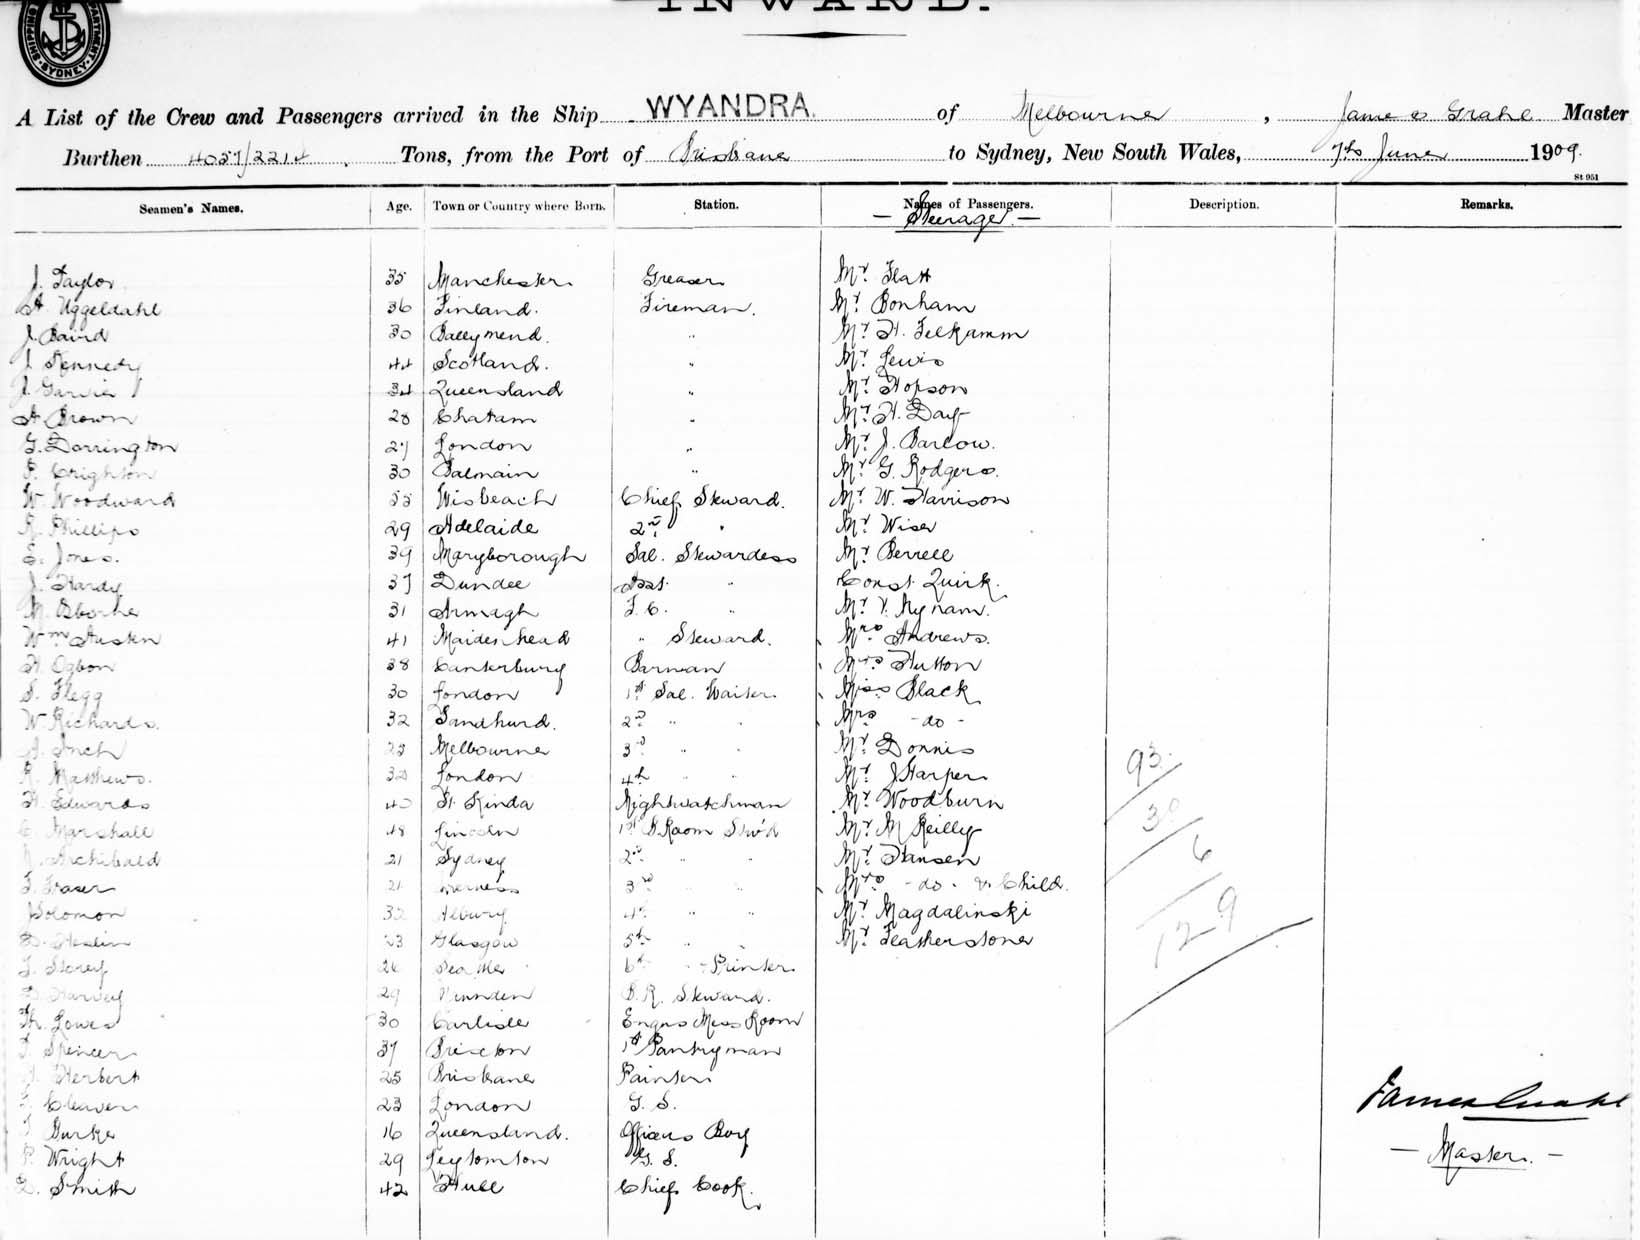 INWARD.
SHIPPING DEPARTMENT SYDNEY
A List of the Crew and Passengers arrived in the Ship WYANDRA. of Melbourne, James Grahl Master
Burthen 4057/2214 Tons, from the Port of Brisbane to Sydney, New South Wales, 7th June 1909.
St 951
Seamen's Names. Age. Town or Country where Born. Station. Names of Passengers. Description. Remarks.
— Steerage —
J. Taylor 35 Manchester Greaser Mr. Flatt
A. Uggeldahl 36 Finland. Fireman. Mr. Bonham
J. Baird 30 Ballymend. " Mr. H. Felkamm
J. Kennedy 44 Scotland. " Mr. Lewis
J. Garvie 34 Queensland " Mr. Hopson
A. Brown 28 Chatam " Mr. H. Day
G. Dorrington 27 London " Mr. J. Barlow.
P. Crighton 30 Balmain " Mr. G. Rodgers.
W. Woodward Wisbeach Chief Steward. Mr. W. Harrison
R. Phillips 29 Adelaide 2nd " Mr. Wiser
E. Jones. 39 Maryborough Sal. Stewardess Mr. Berrell
J. Hardy 37 Dundee Asst. " Const. Quirk.
M. Osborne 31 Armagh F. C. " Mr. V. Mynam.
Wm Austin 41 Maidenhead " Steward. Mrs. Andrews.
H. Ogbon 38 Canterbury Barman Mrs. Hutton
S. Flegg 30 London 1st Sal. Waiter Miss Black
W. Richards. 32 Sandhurd. 2nd " " Mrs - do -
A. Inch 23 Melbourne 3rd " " Mr. Donnis
R. Matthews. 32 London 4th " " Mr. J. Harper
H. Edwards 40 St. Kinda Nightwatchman Mr. Woodburn
C. Marshall 48 Lincoln 1st B. Room Stw'd Mr. M. Reilly
Archibald 21 Sydney 2nd " " Mr. Hansen
F. Fraser 21 Inverness 3rd " " Mrs - do - & Child.
J. Solomon 32 Albury 4th " " Mr. Magdalinski
Heslin 23 Glasgow 5th " " Mr. Featherstone
T. Storey 26 Seattle 6th " - Printer
Harvey 29 B. R. Steward.
Th. Lowes 30 Carlisle Engrs Mess Room
Spencer 37 Brixton 1st Pantryman
Herbert 25 Brisbane Painter
Cleaver 23 London G. S.
Burke 16 Queensland. Officers Boy
P. Wright 29 Leytomton G. S.
D. Smith 42 Hull Chief Cook.
93
30
6
129
James Grahl
— Master. —